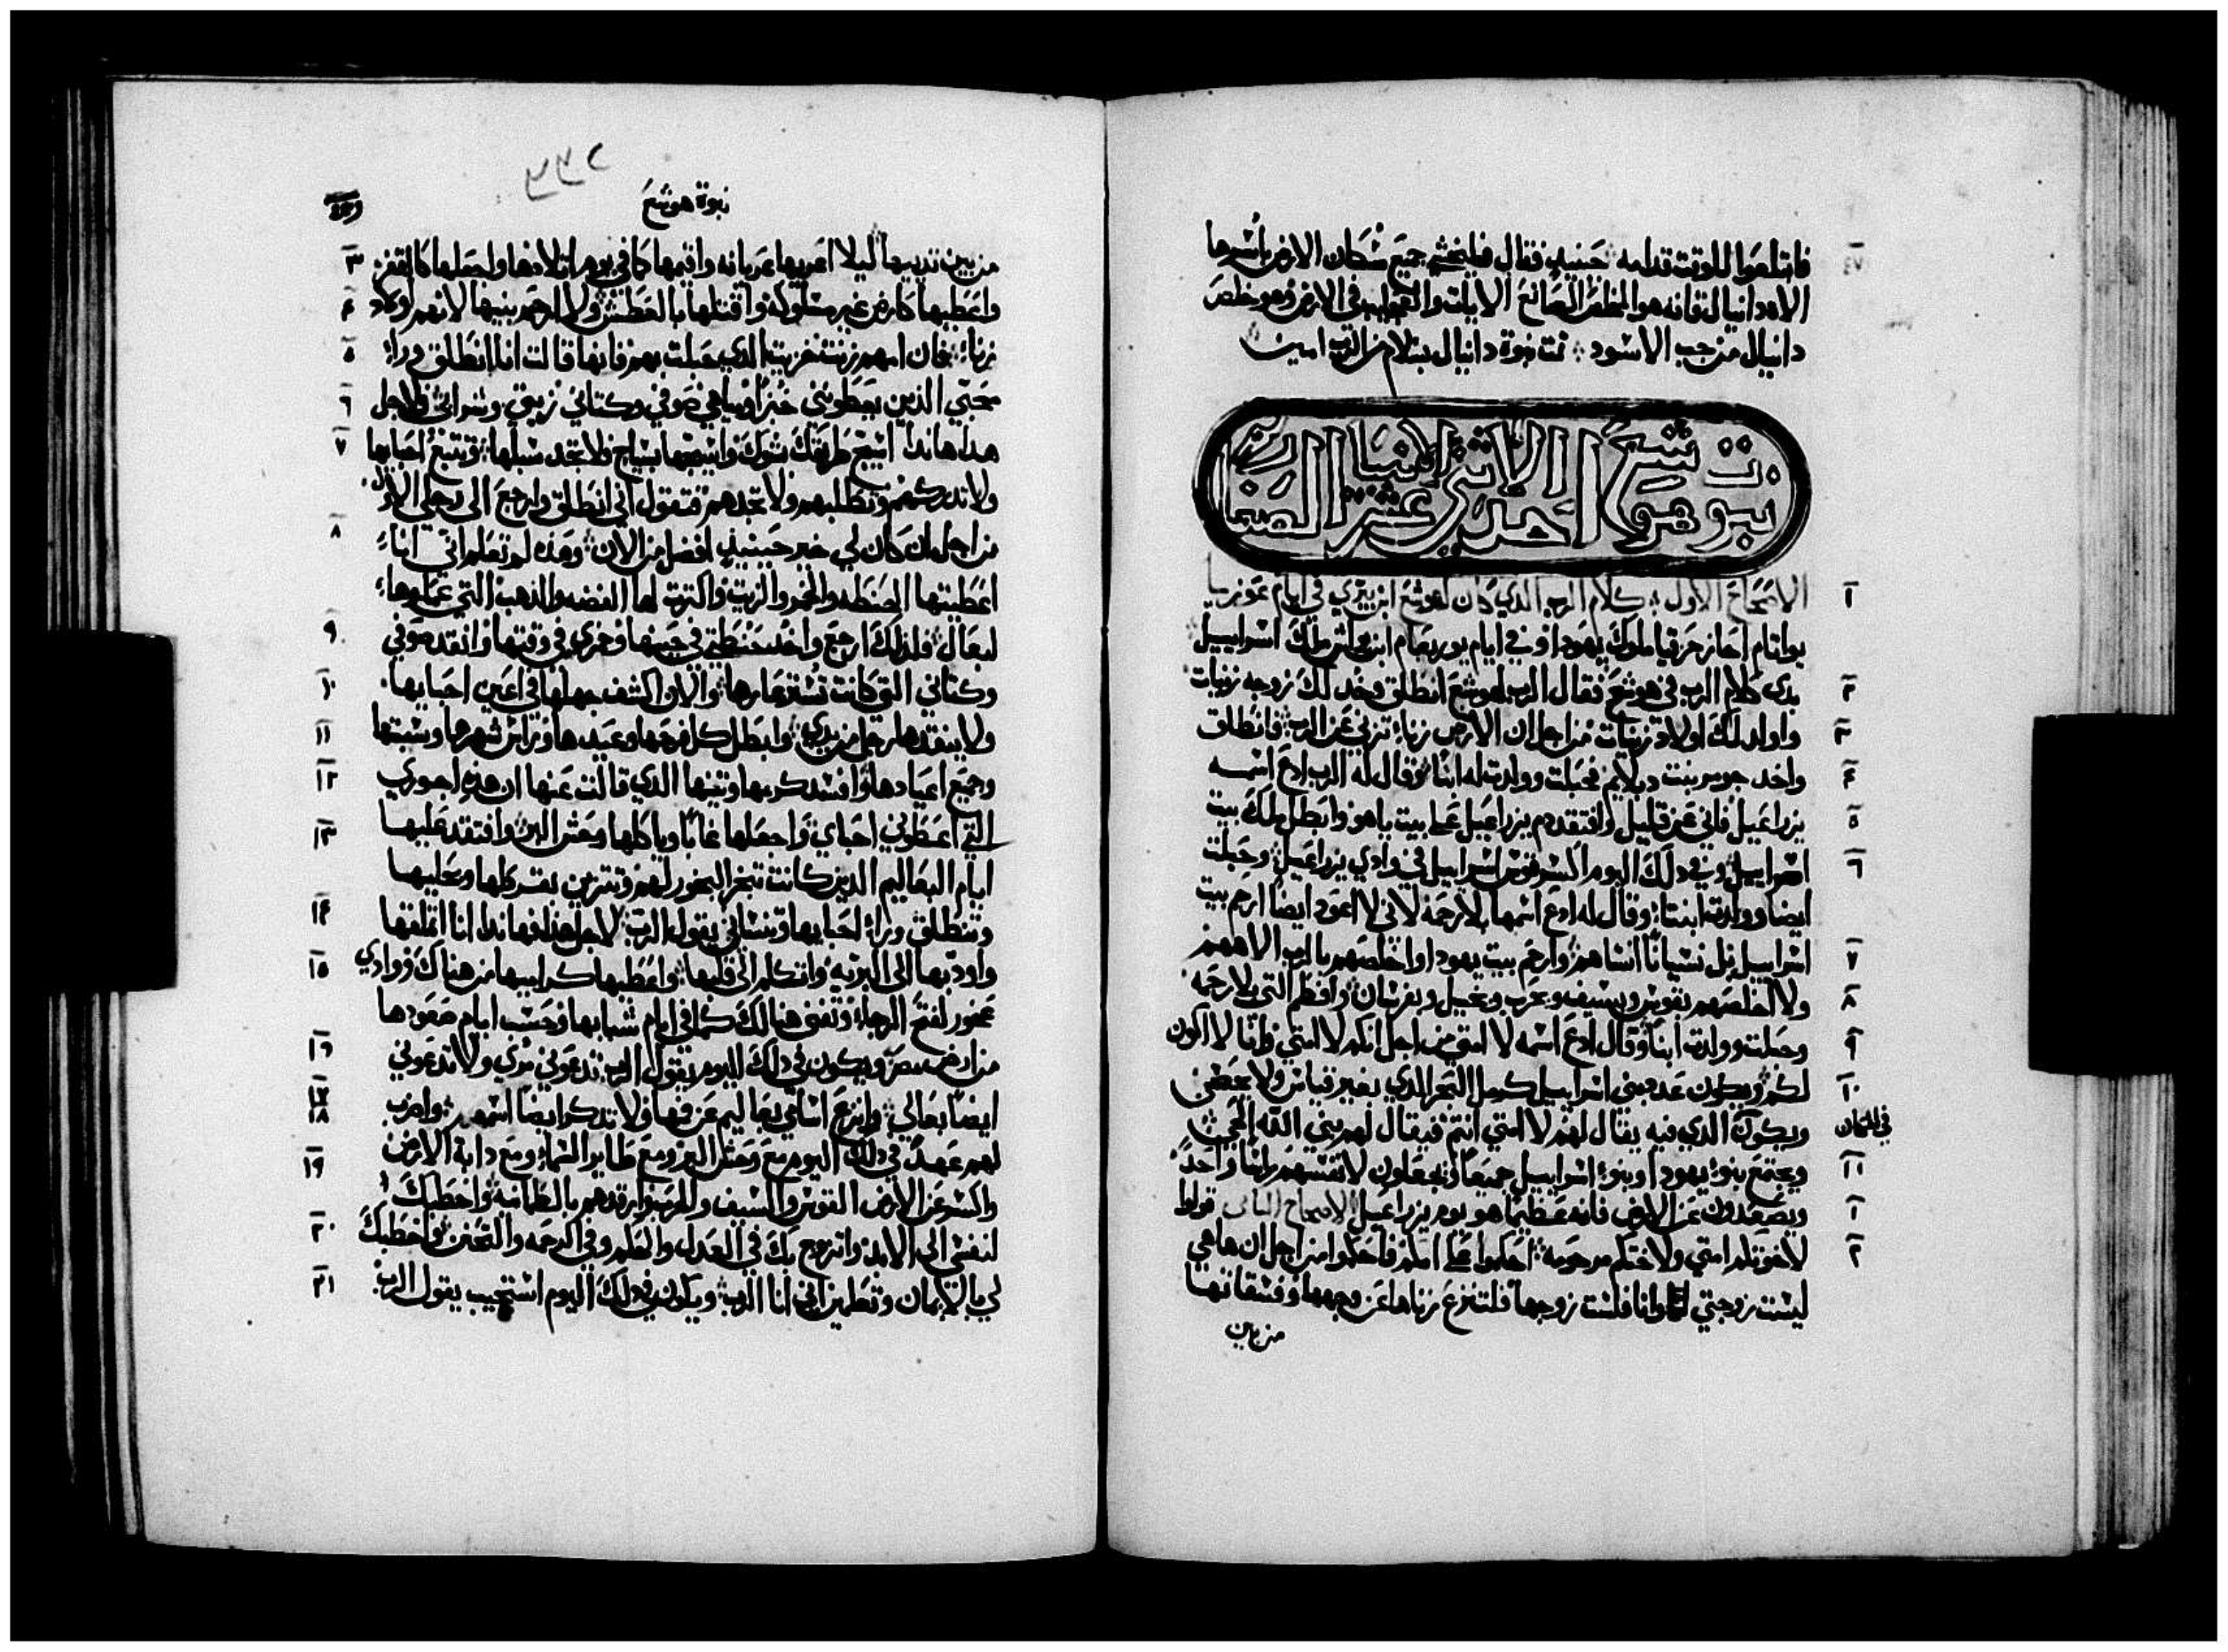 فابتلعوا للوقت قدامه حينيذ فقال فليخشي جميع سكان الارض باسرها
الاه دانيال فانه هو المخلص الصانع الايات والعجايب في الارض وهو خلص
دانيال من جب الاسود تمت نبوة دانيال بسلام من الرب امين
نبوة هوشع احد الاثني عشر الانبيا الصغار
الاصحاح الاول كلام الرب الذي كان لهوشع ابن بيري في ايام عوزيا
يواثام احاز حزقيا ملوك يهودا وفي ايام يوربعام ابن يواش ملك اسراييل
٢ بدي كلام الرب في هوشع فقال الرب لهوشع انطلق وخد لك زوجه زنيات
٣ واولد لك اولاد زنيات من اجل ان الارض زناءً تزني عن الرب فانطلق
٤ واخد جومر بنت دبلايم فحبلت وولدت له ابناً وقال له الرب ادع اسمه
٥ يزراعيل فاني عن قليل وافتقد دم يزراعيل علي بيت ياهو وابطل ملك بيت
٦ اسراييل وفي دلك اليوم اكسر قوس اسراييل في وادي يزراعيل وحبلت
ايضا وولدت ابنتاً وقال له ادع اسمها بلا رحمة لاني لا اعود ايضاً ارحم بيت
٧ اسراييل بل نسياناً انساهم وارحم بيت يهودا واخلصهم بالرب الاههم
٨ ولا اخلصهم بقوس وبسيف وبحرب وبخيل وبفرسان وافطم التي بلا رحمة
٩ وحبلت وولدت ابناً وقال ادع اسمه لا امتي من اجل انكم لا امتي وانا لا اكون
١٠ لكم ويكون عدد بني اسراييل كرمل البحر الدي بغير قياس ولا يحصي
ويكون الدي فيه يقال لهم لا امتي انتم فيقال لهم بني الله الحي
١١ ويجتمع بنو يهودا وبنو اسراييل جميعاً ويجعلون لانفسهم راساً واحداً
١ ويصعدون عن الارض فانه عظيماً هو يوم يزراعيل الاصحاح الثاني قولوا
٢ لاخوتكم امتي ولاختكم مرحومه احكموا علي امكم فاحكموا من اجل ان ها هي
ليست زوجتي وانا فلست زوجها فلتنزع زناها عن وجهها وفسقاتها
من بين
نبوة هوشع
من بين تدييها ليلا اعريها عريانه واقيمها كما في يوم اتلادها واجعلها كالقفر ٣
واعطيها كارض غير مسلوكة واقتلها بالعطش ولا ارحم بنيها لانهم اولاد ٤
زناء فان امهم زنت خزيت الدي حبلت بهم فانها قالت انا انطلق وراء ٥
محبي الدين يعطوني خبزاً ومياهي صوفي وكتاني زيتي وشرابي فلاجل ٦
هدا هاندا اسيج طريقك بشوك واسيجها بسياج فلا تجد سبلها وتتبع احبابها ٧
ولا تدركهم وتطلبهم ولا تجدهم فتقول اني انطلق وارجع الي رجلي الاول
من اجل ان كان لي خير حينيذ افضل من الان وهذه لم تعلم اني انا ٨
اعطيتها الحنطه والخمر والزيت واكترت لها الفضه والدهب التي عملوها
لبعال فلذلك ارجع واخد حنطتي في حينها وخمري في وقتها وانقد صوفي ٩
وكتاني التي كانت تستر عارها والان اكشف جهلها في اعين احبايها ١٠
ولا ينقدها رجل من يدي وابطل كل فرحها وعيدها وراس شهرها وسبتها ١١
وجميع اعيادها وافسد كرمها وتينها الدي قالت عنها ان هذه اجوري ١٢
التي اعطوني احباي واجعلها غاباً وياكلها وحش البر وافتقد عليها ١٣
ايام البعاليم الدين كانت تبخر البخور لهم وتتزين بقرطها وحليها
وتنطلق وراء احبايها وتنساني يقول الرب لاجل هذا فهاندا انا اتملقها ١٤
واوديها الي البريه واتكلم الي قلبها واعطيها كراميها من هناك ووادي ١٥
عخور لفتح الرجاء وتغني هنالك كما في ايام شبابها وحسب ايام صعودها
من ارض مصر ويكون في دلك اليوم يقول الرب تدعوني مردي ولا تدعوني ١٦
ايضاً بعالي وانزع اسامي بعاليم عن فمها ولا تدكر ايضا اسمهم واضرب ١٧ ١٨
لهم عهداً في دلك اليوم مع وحش البر ومع طاير السماء ومع دابة الارض
واكسر عن الارض القوس والسيف والحرب وارقدهم بالطمانيه واخطبك ١٩
لنفسي الي الابد واتزوج بك في العدل والحكم وفي الرحمه والتحنن واخطبك ٢٠
لي بالايمان وتعلمين اني انا الرب ويكون في دلك اليوم استجيب يقول الرب ٢١